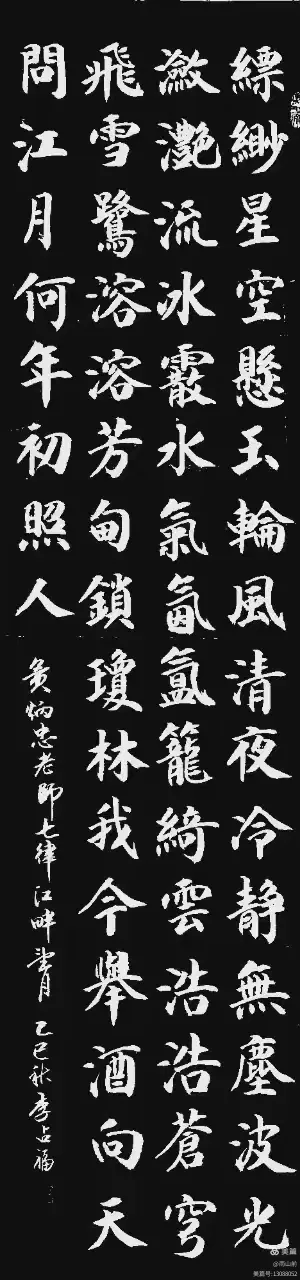 縹緲星空懸玉輪風清夜冷靜無塵波光
瀲灧流冰霰水氣氤氳籠綺雲浩浩蒼穹
飛雪鷺溶溶芳甸鎖瓊林我今舉酒向天
問江月何年初照人
黃炳忠老師七律江畔望月 乙巳秋李占福
美篇
@雨山前
美篇号:13088052